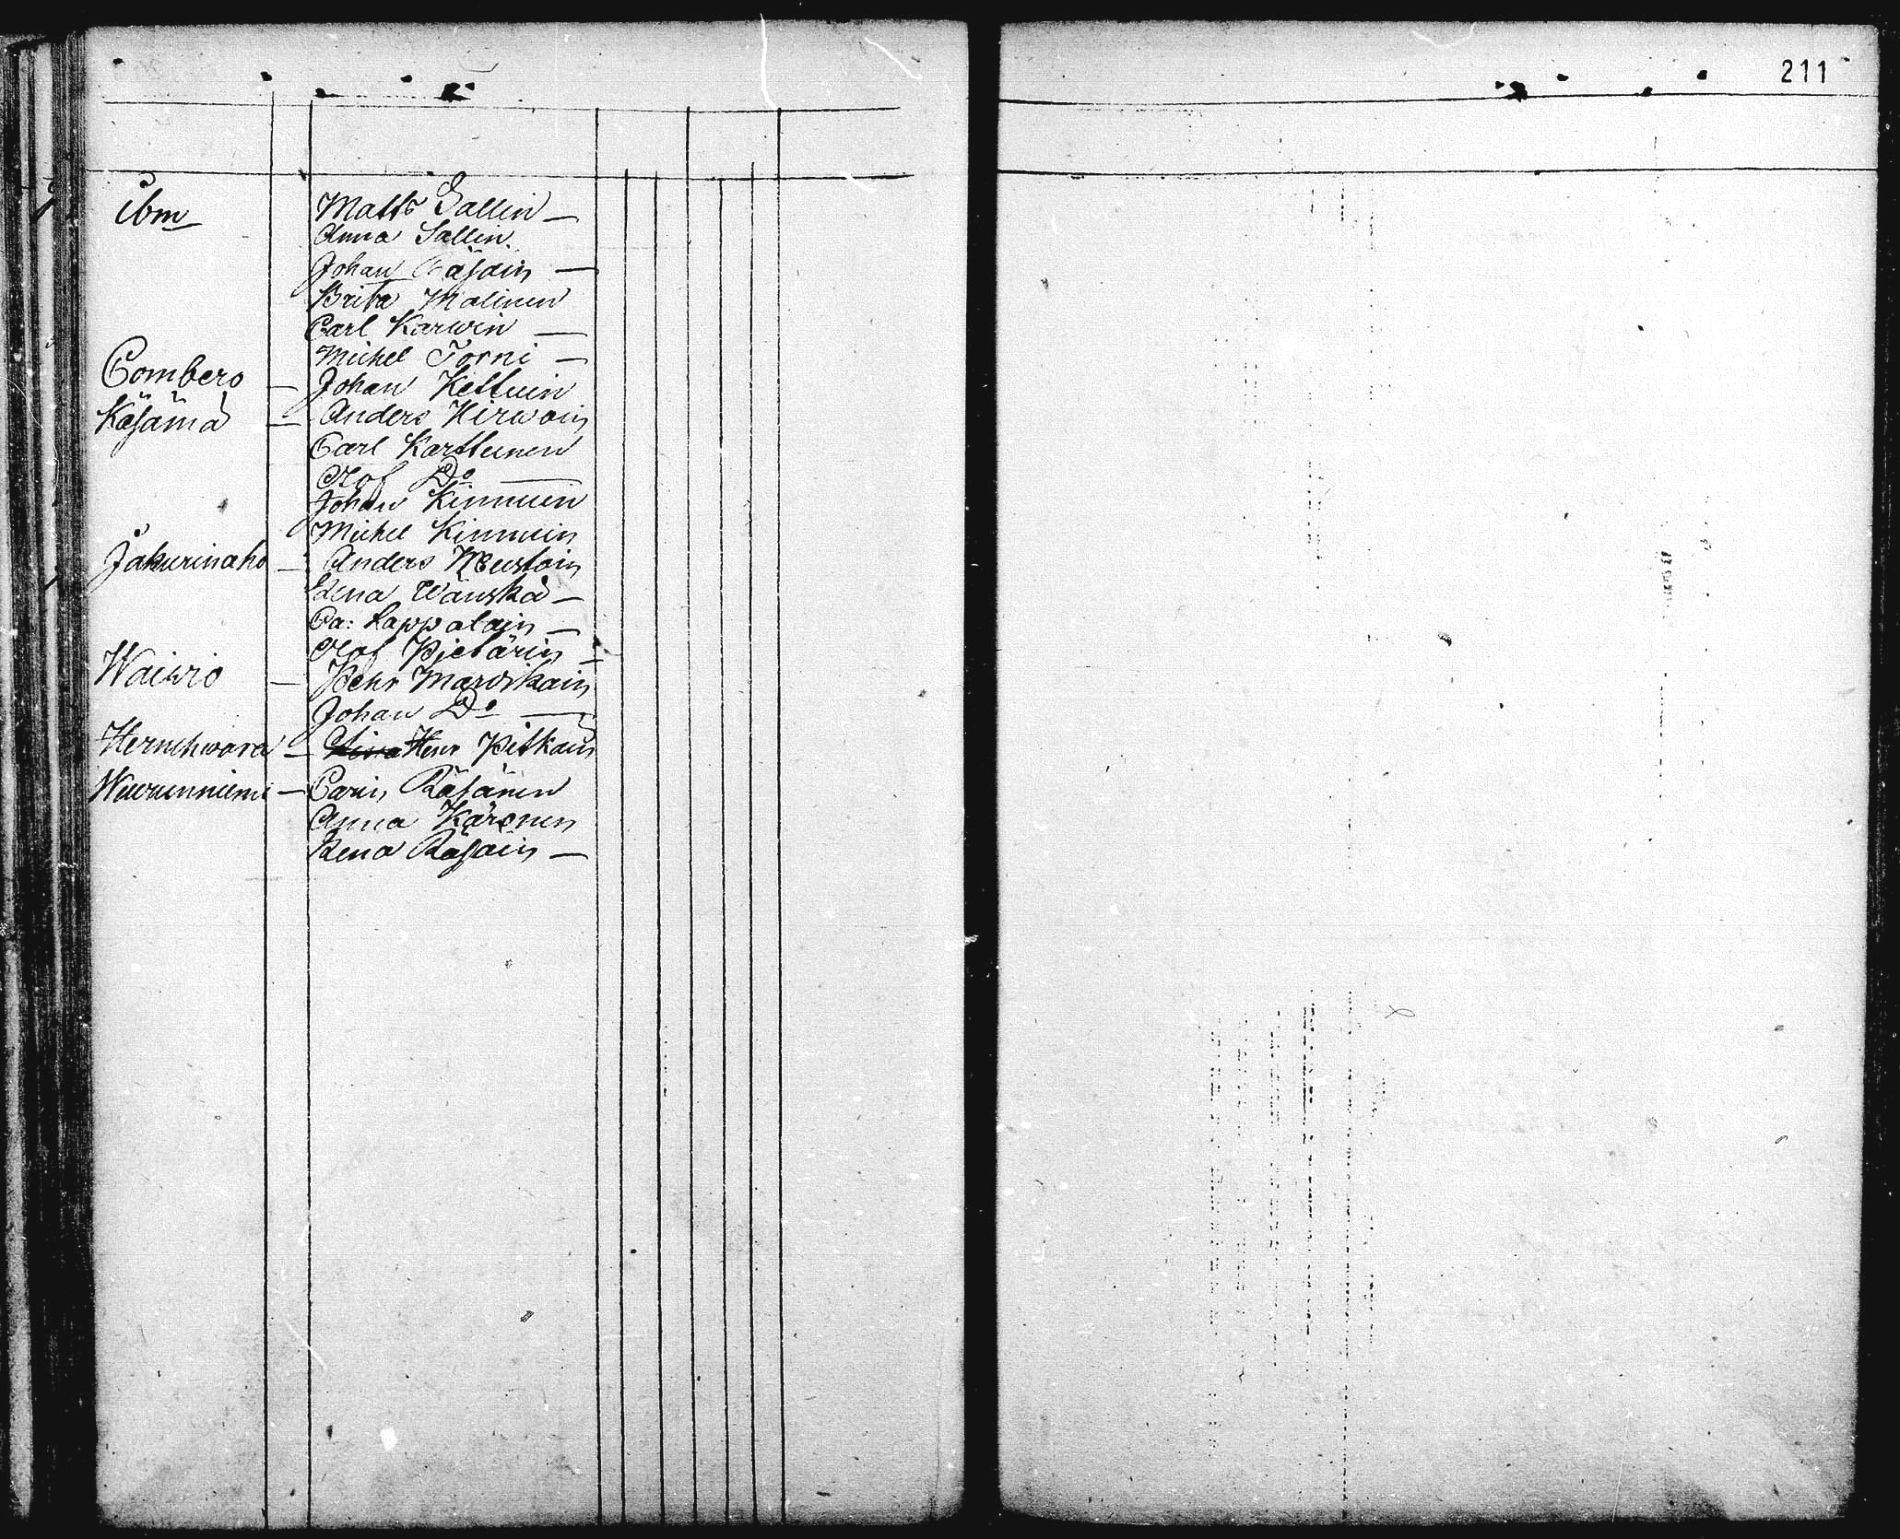 211
ibm Matts Sallin —
Anna Sallin
Johan Räsäin —
Brita Malinen
Carl Karwin —
Michel Torni —
Combero — Johan Kettuin
Käsämä — Anders Hirwoin
Carl Karttunen
Olof Do —
Johan Kinnuin
Michel Kinnuin
Jakurinaho — Anders Neustoin
Lena Wänskä —
Ca: Lappalain —
Olof Pjetärin —
Waiwio — Pehr Mawskain
Johan Do —
Hernehwara — Henr Pitkäin
Wuorunniemi — Carin Räsänen
Anna Kärönen
Rena Räsäin —